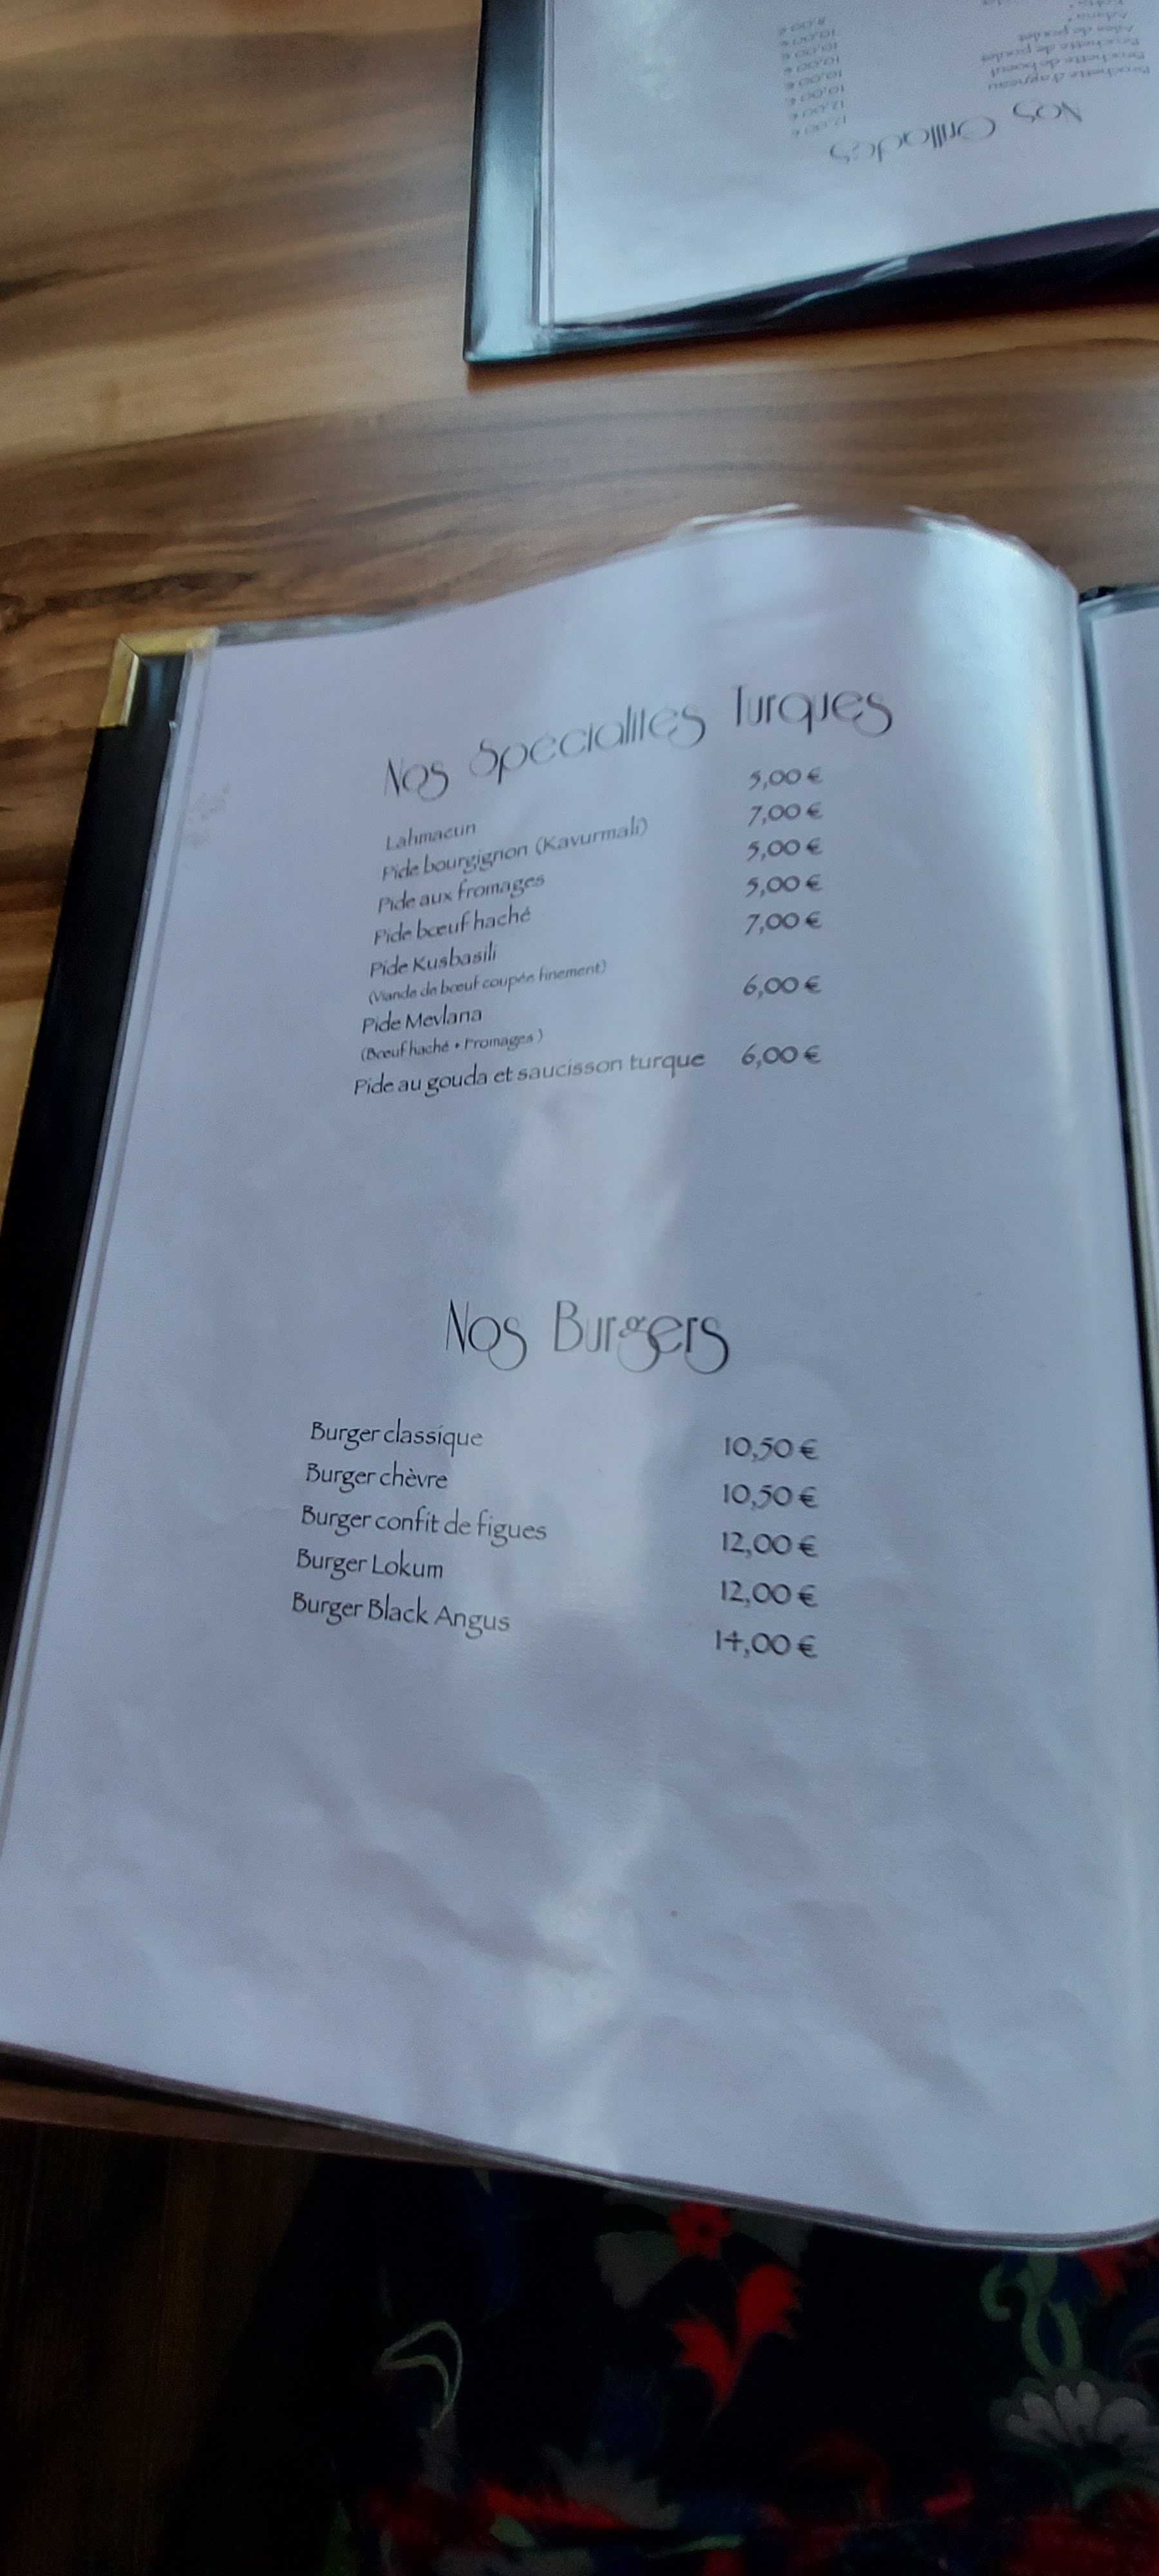 Nos Grillades
Brochette d'agneau 12,00 €
Brochette de boeuf 12,00 €
Brochette de poulet 10,00 €
Ailes de poulet 10,00 €
Adana 10,00 €
Nos Spécialités Turques
Lahmacun 5,00 €
Pide bourgignon (Kavurmali) 7,00 €
Pide aux fromages 5,00 €
Pide bœuf haché 5,00 €
Pide Kusbasili 7,00 €
(Viande de bœuf coupée finement)
Pide Mevlana 6,00 €
(Bœuf haché + Fromages )
Pide au gouda et saucisson turque 6,00 €
Nos Burgers
Burger classique 10,50 €
Burger chèvre 10,50 €
Burger confit de figues 12,00 €
Burger Lokum 12,00 €
Burger Black Angus 14,00 €